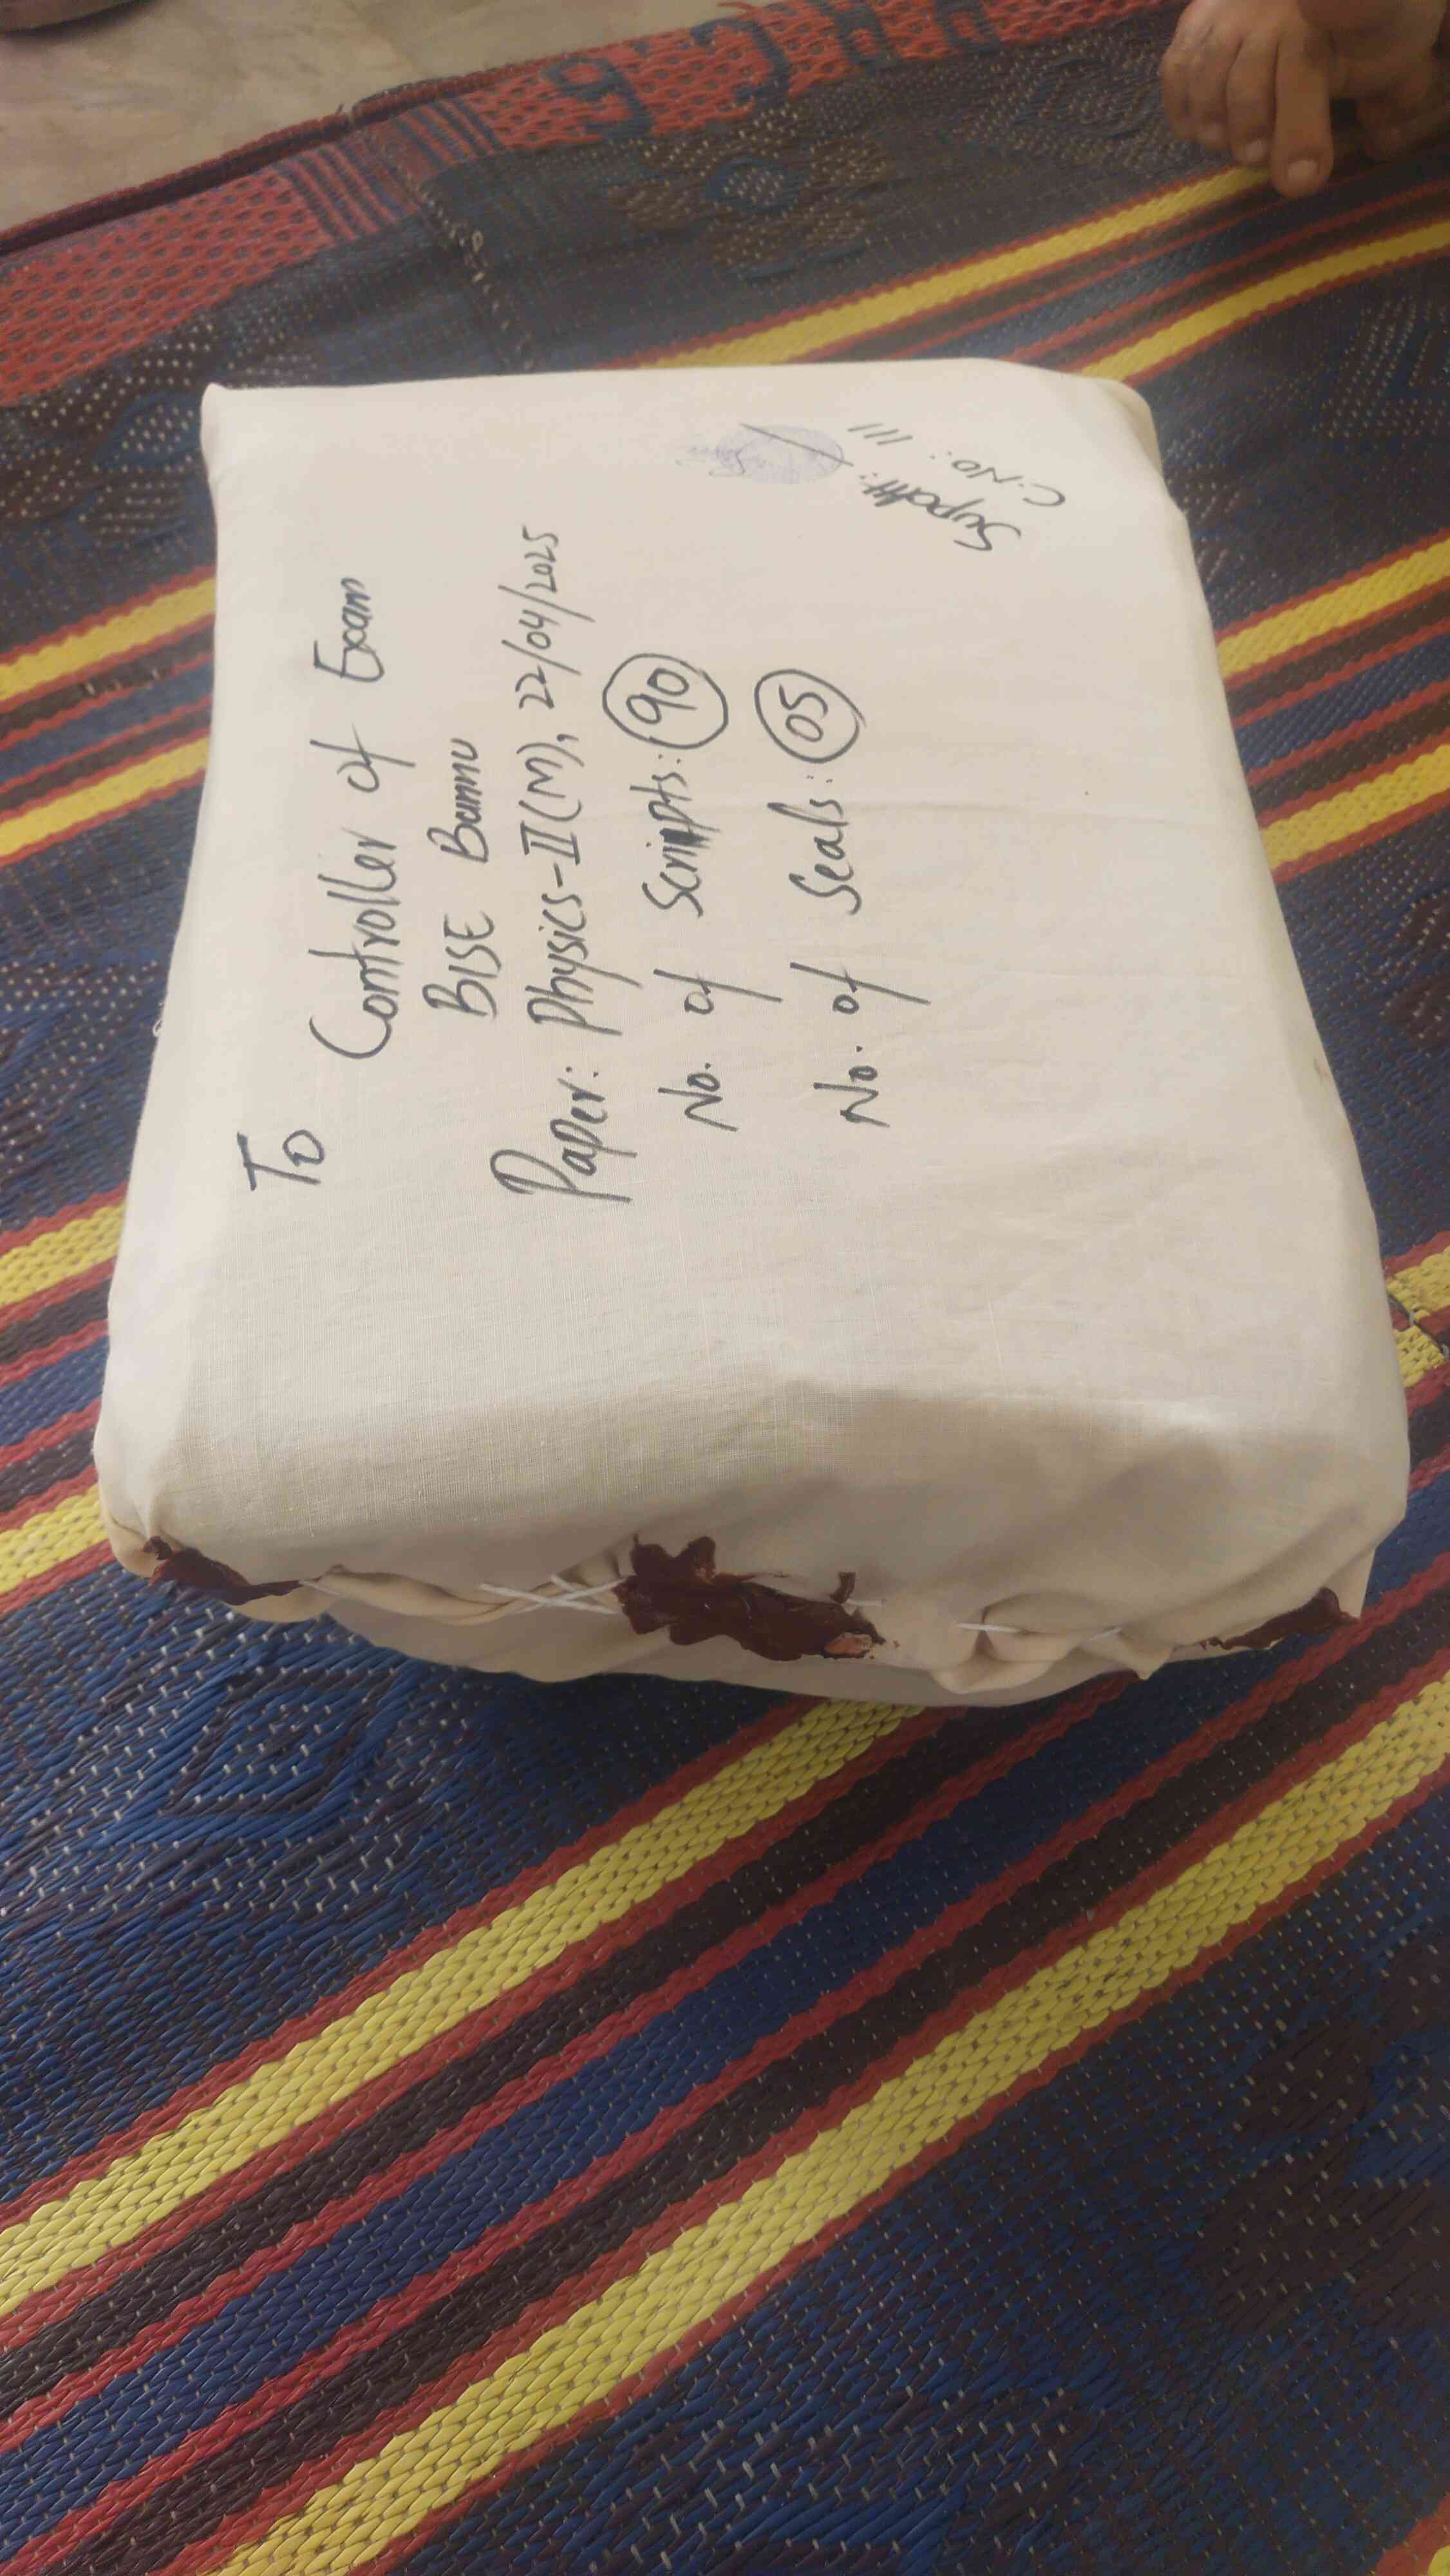 To
Controller of Exam
BISE Bannu
Paper: Physics-II(M), 22/04/2025
No. of Scripts: 90
No. of Seals: 05
Supdtt:
C.No: 111